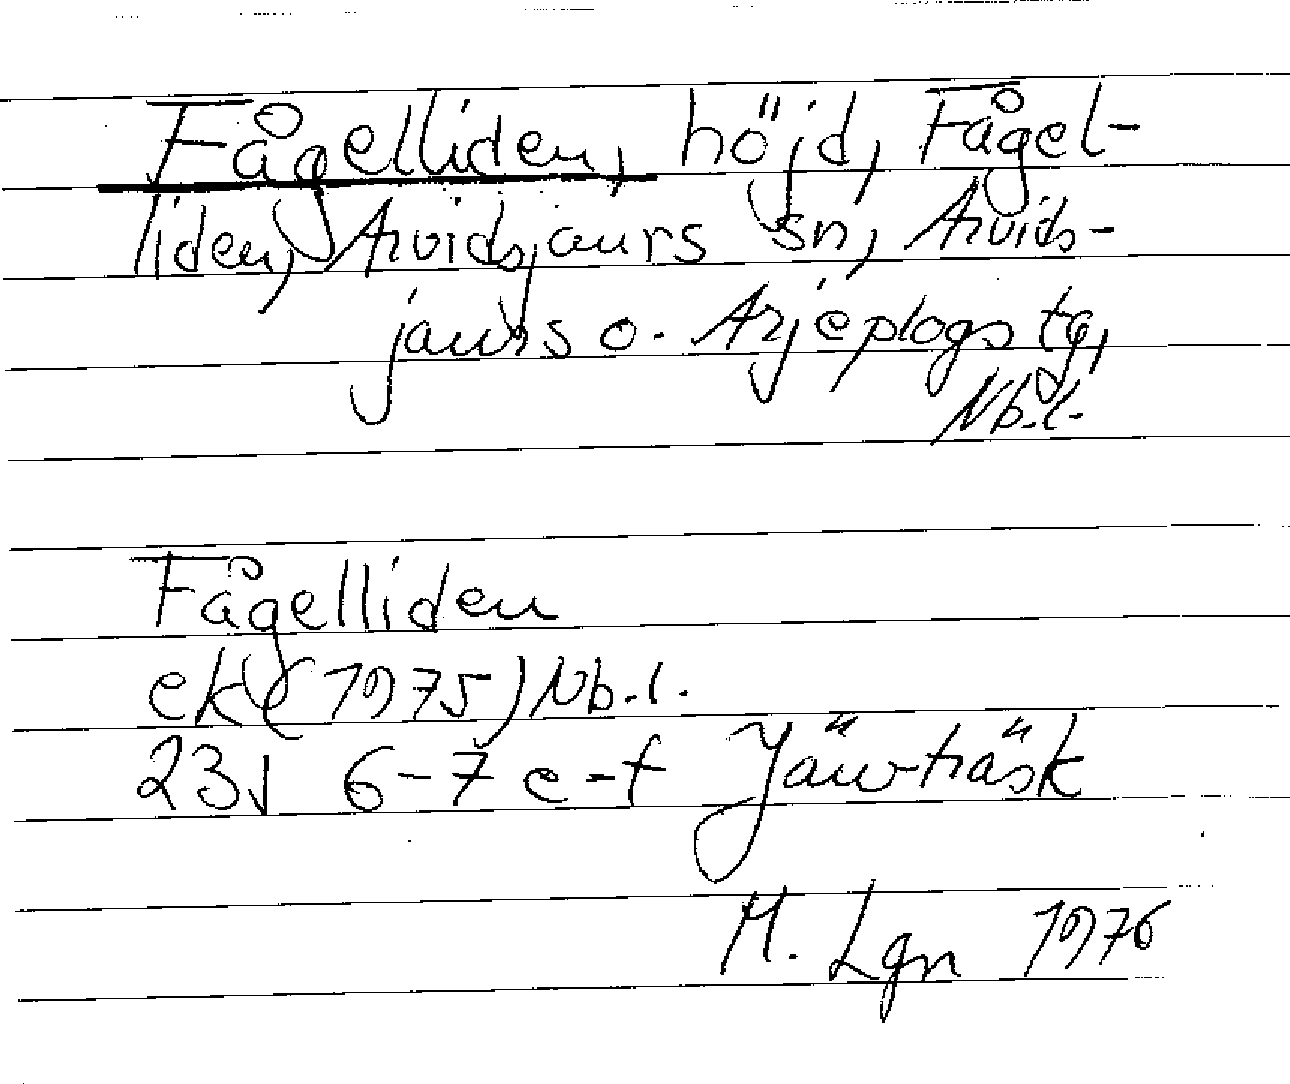 Fågelliden, höjd, Fågel-
liden, Arvidsjaurs sn, Arvids-
jaurs o. Arjeplogs tg,
Nb.l.
Fågelliden
ek (1975) Nb.l.
23J 6-7 e-f Jävrträsk
H. Lgn 1976